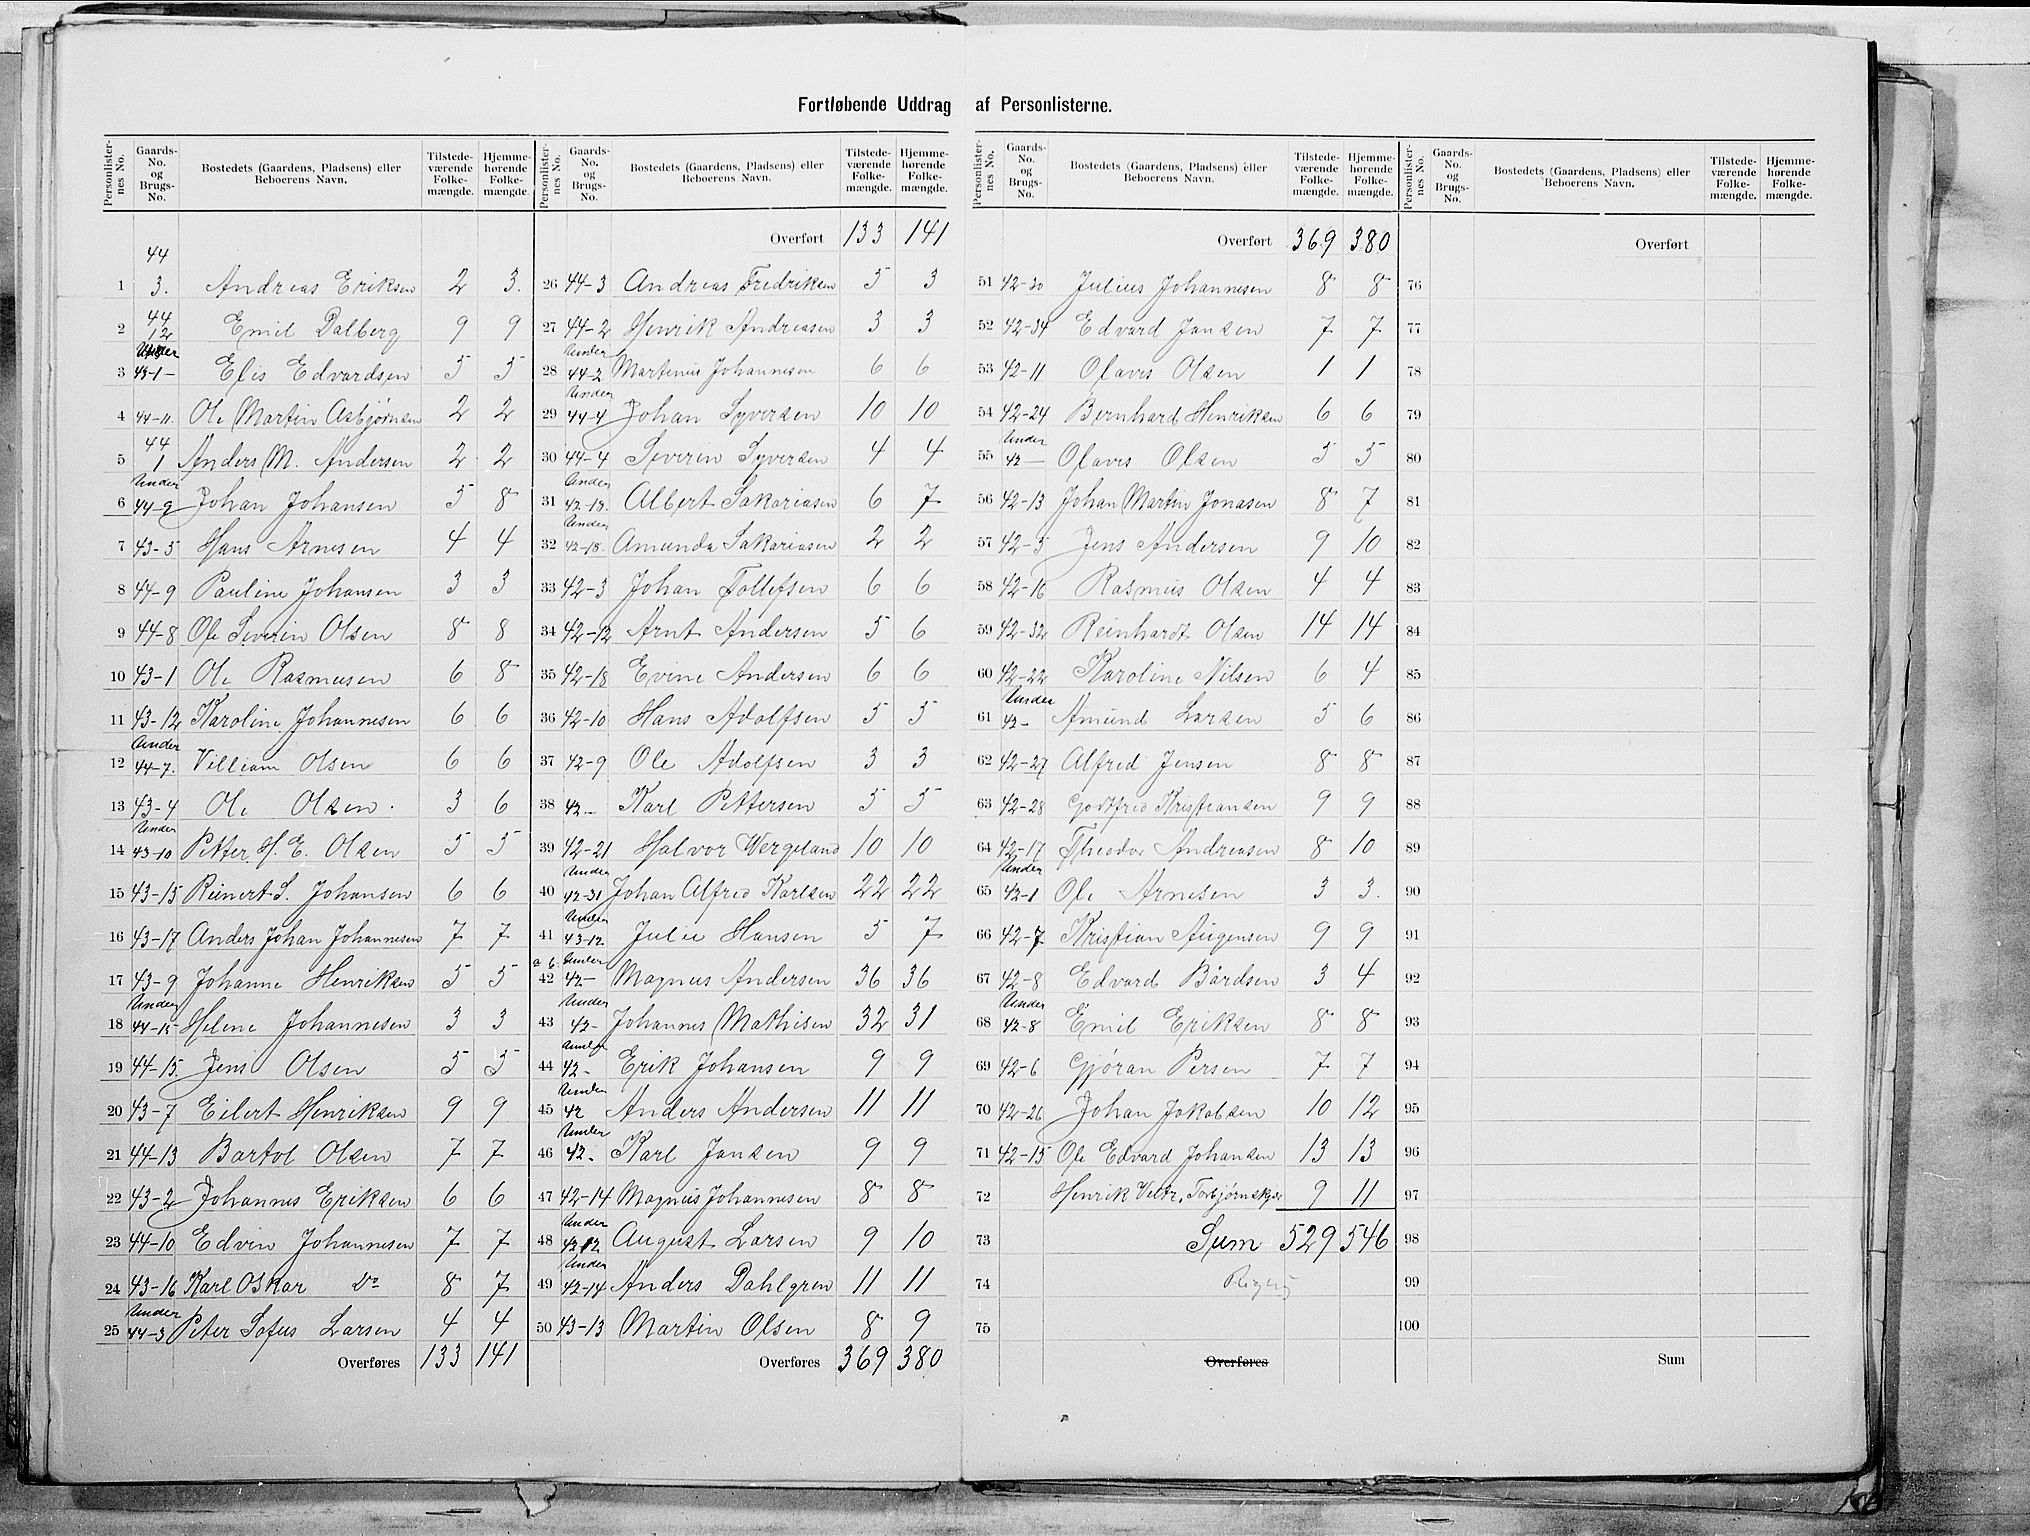 Fortløbende Uddrag af Personlisterne.
Personlister-nes No. | Gaards-No. og Brugs-No. | Bostedets (Gaardens, Pladsens) eller Beboerens Navn. | Tilstede-værende Folke-mængde. | Hjemme-hørende Folke-mængde.
1 44 3. Andreas Eriksen 2 3.
2 44 12 Emil Dalberg 9 9
3 Under 43-1- Elis Edvardsen 5 5
4 44-11. Ole Martin Asbjørnsen 2 2
5 44 1 Anders M. Andersen 2 2
6 Under 44-9 Johan Johansen 5 8
7 43-5 Hans Arnesen 4 4
8 44-9 Pauline Johansen 3 3
9 44-8 Ole Severin Olsen 8 8
10 43-1 Ole Rasmusen 6 8
11 43-12 Karoline Johannesen 6 6
12 Under 44-7. Villiam Olsen 6 6
13 43-4 Ole Olsen. 3 6
14 Under 43-10 Petter H. E. Olsen 5 5
15 43-15 Reinert S. Johansen 6 6
16 43-17 Anders Johan Johannesen 7 7
17 43-9 Johanne Henriksen 5 5
18 Under 44-15 Helene Johannesen 3 3
19 44-15. Jens Olsen 5 5
20 43-7 Eilert Henriksen 9 9
21 44-13 Bartol Olsen 7 7
22 43-2 Johannes Eriksen 6 6
23 44-10 Edvin Johannesen 7 7
24 43-16 Karl Oskar Do 8 7
25 Under 44-3 Peter Sofus Larsen 4 4
Overføres 133 141
Personlister-nes No. | Gaards-No. og Brugs-No. | Bostedets (Gaardens, Pladsens) eller Beboerens Navn. | Tilstede-værende Folke-mængde. | Hjemme-hørende Folke-mængde.
Overført 133 141
26 44-3 Andreas Fredriksen 5 3
27 44-2 Henrik Andreasen 3 3
28 Under 44-2 Martinus Johannesen 6 6
29 Under 44-4 Johan Syversen 10 10
30 44-4 Severin Syversen 4 4
31 Under 42-18. Albert Sakariasen 6 7
32 Under 42-18. Amunda Sakariasen 2 2
33 42-3 Johan Tollefsen 6 6
34 42-12 Arnt Andersen 5 6
35 42-18 Evine Andersen 6 6
36 42-10 Hans Adolfsen 5 5
37 42-9 Ole Adolfsen 3 3
38 42- Karl Pettersen 5 5
39 42-21 Halvor Wergeland 10 10
40 Under 42-31 Johan Alfred Karlsen 22 22
41 Under 43-12 Julie Hansen 5 7
42 a b. Under 42- Magnus Andersen 36 36
43 Under 42- Johannes Mathisen 32 31
44 Under 42- Erik Johansen 9 9
45 Under 42 Anders Andersen 11 11
46 Under 42- Karl Jansen 9 9
47 42-14 Magnus Johannesen 8 8
48 Under 42-12 August Larsen 9 10
49 Under 42-14 Anders Dahlgren 11 11
50 43-13 Martin Olsen 8 9
Overføres 369 380
Personlister-nes No. | Gaards-No. og Brugs-No. | Bostedets (Gaardens, Pladsens) eller Beboerens Navn. | Tilstede-værende Folke-mængde. | Hjemme-hørende Folke-mængde.
Overført 369 380
51 42-30 Julius Johannesen 8 8
52 42-34 Edvard Jansen 7 7
53 42-11 Olaves Olsen 1 1
54 42-24 Bernhard Henriksen 6 6
55 Under 42- Olaves Olsen 5 5
56 42-13 Johan Martin Jonasen 8 7
57 42-5 Jens Andersen 9 10
58 42-16 Rasmus Olsen 4 4
59 42-32 Reinhardt Olsen 14 14
60 42-22 Karoline Nilsen 6 4
61 Under 42- Amund Larsen 5 6
62 42-27 Alfred Jensen 8 8
63 42-28 Godtfred Kristiansen 9 9
64 42-17 Theodor Andreasen 8 10
65 Under 42-1 Ole Arnesen 3 3.
66 42-7 Kristian Augensen 9 9
67 42-8 Edvard Bårdsen 3 4
68 Under 42-8 Emil Eriksen 8 8
69 42-6 Gjøran Persen 7 7
70 42-26 Johan Jakobsen 10 12
71 42-15 Ole Edvard Johansen 13 13
72 Henrik Veltz, Torbjørnskjær 9 11
73 Sum 529 546
74
75
Overføres
Personlister-nes No. | Gaards-No. og Brugs-No. | Bostedets (Gaardens, Pladsens) eller Beboerens Navn. | Tilstede-værende Folke-mængde. | Hjemme-hørende Folke-mængde.
Overført
76
77
78
79
80
81
82
83
84
85
86
87
88
89
90
91
92
93
94
95
96
97
98
99
100
Sum